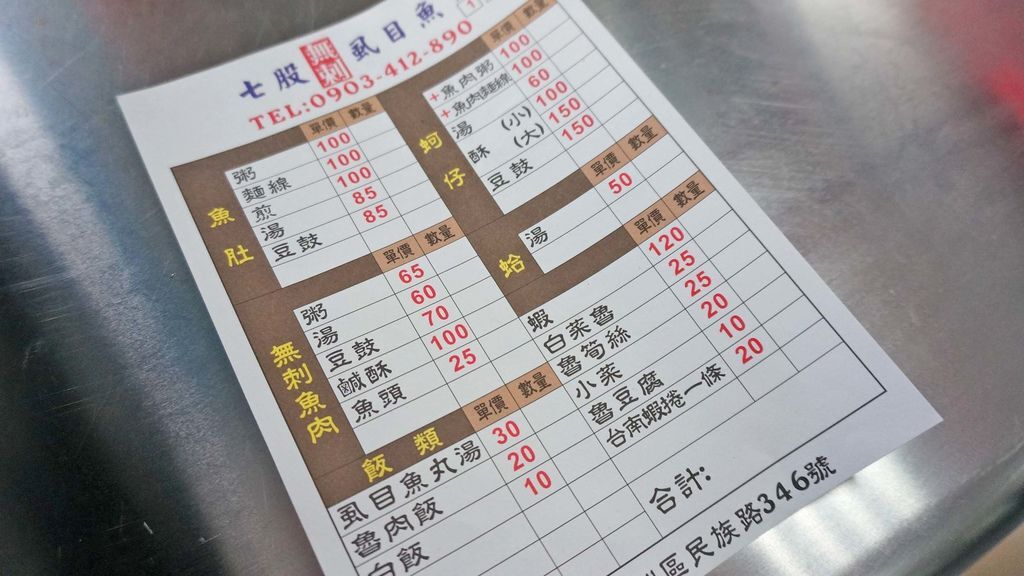 七股 無刺 虱目魚
TEL:0903-412-890
1
魚肚 單價 數量
粥 100
麵線 100
煎 100
湯 85
豆鼓 85
無刺魚肉 單價 數量
粥 65
湯 60
豆鼓 70
鹹酥 100
魚頭 25
飯類 單價 數量
虱目魚丸湯 30
魯肉飯 20
白飯 10
蚵仔 單價 數量
+魚肉粥 100
+魚肉麵線 100
湯 60
酥 (小) 100
(大) 150
豆鼓 150
蛤 單價 數量
湯 50
單價 數量
蝦 120
白菜魯 25
魯筍絲 25
小菜 20
魯豆腐 10
台南蝦捲一條 20
合計:
區民族路346號